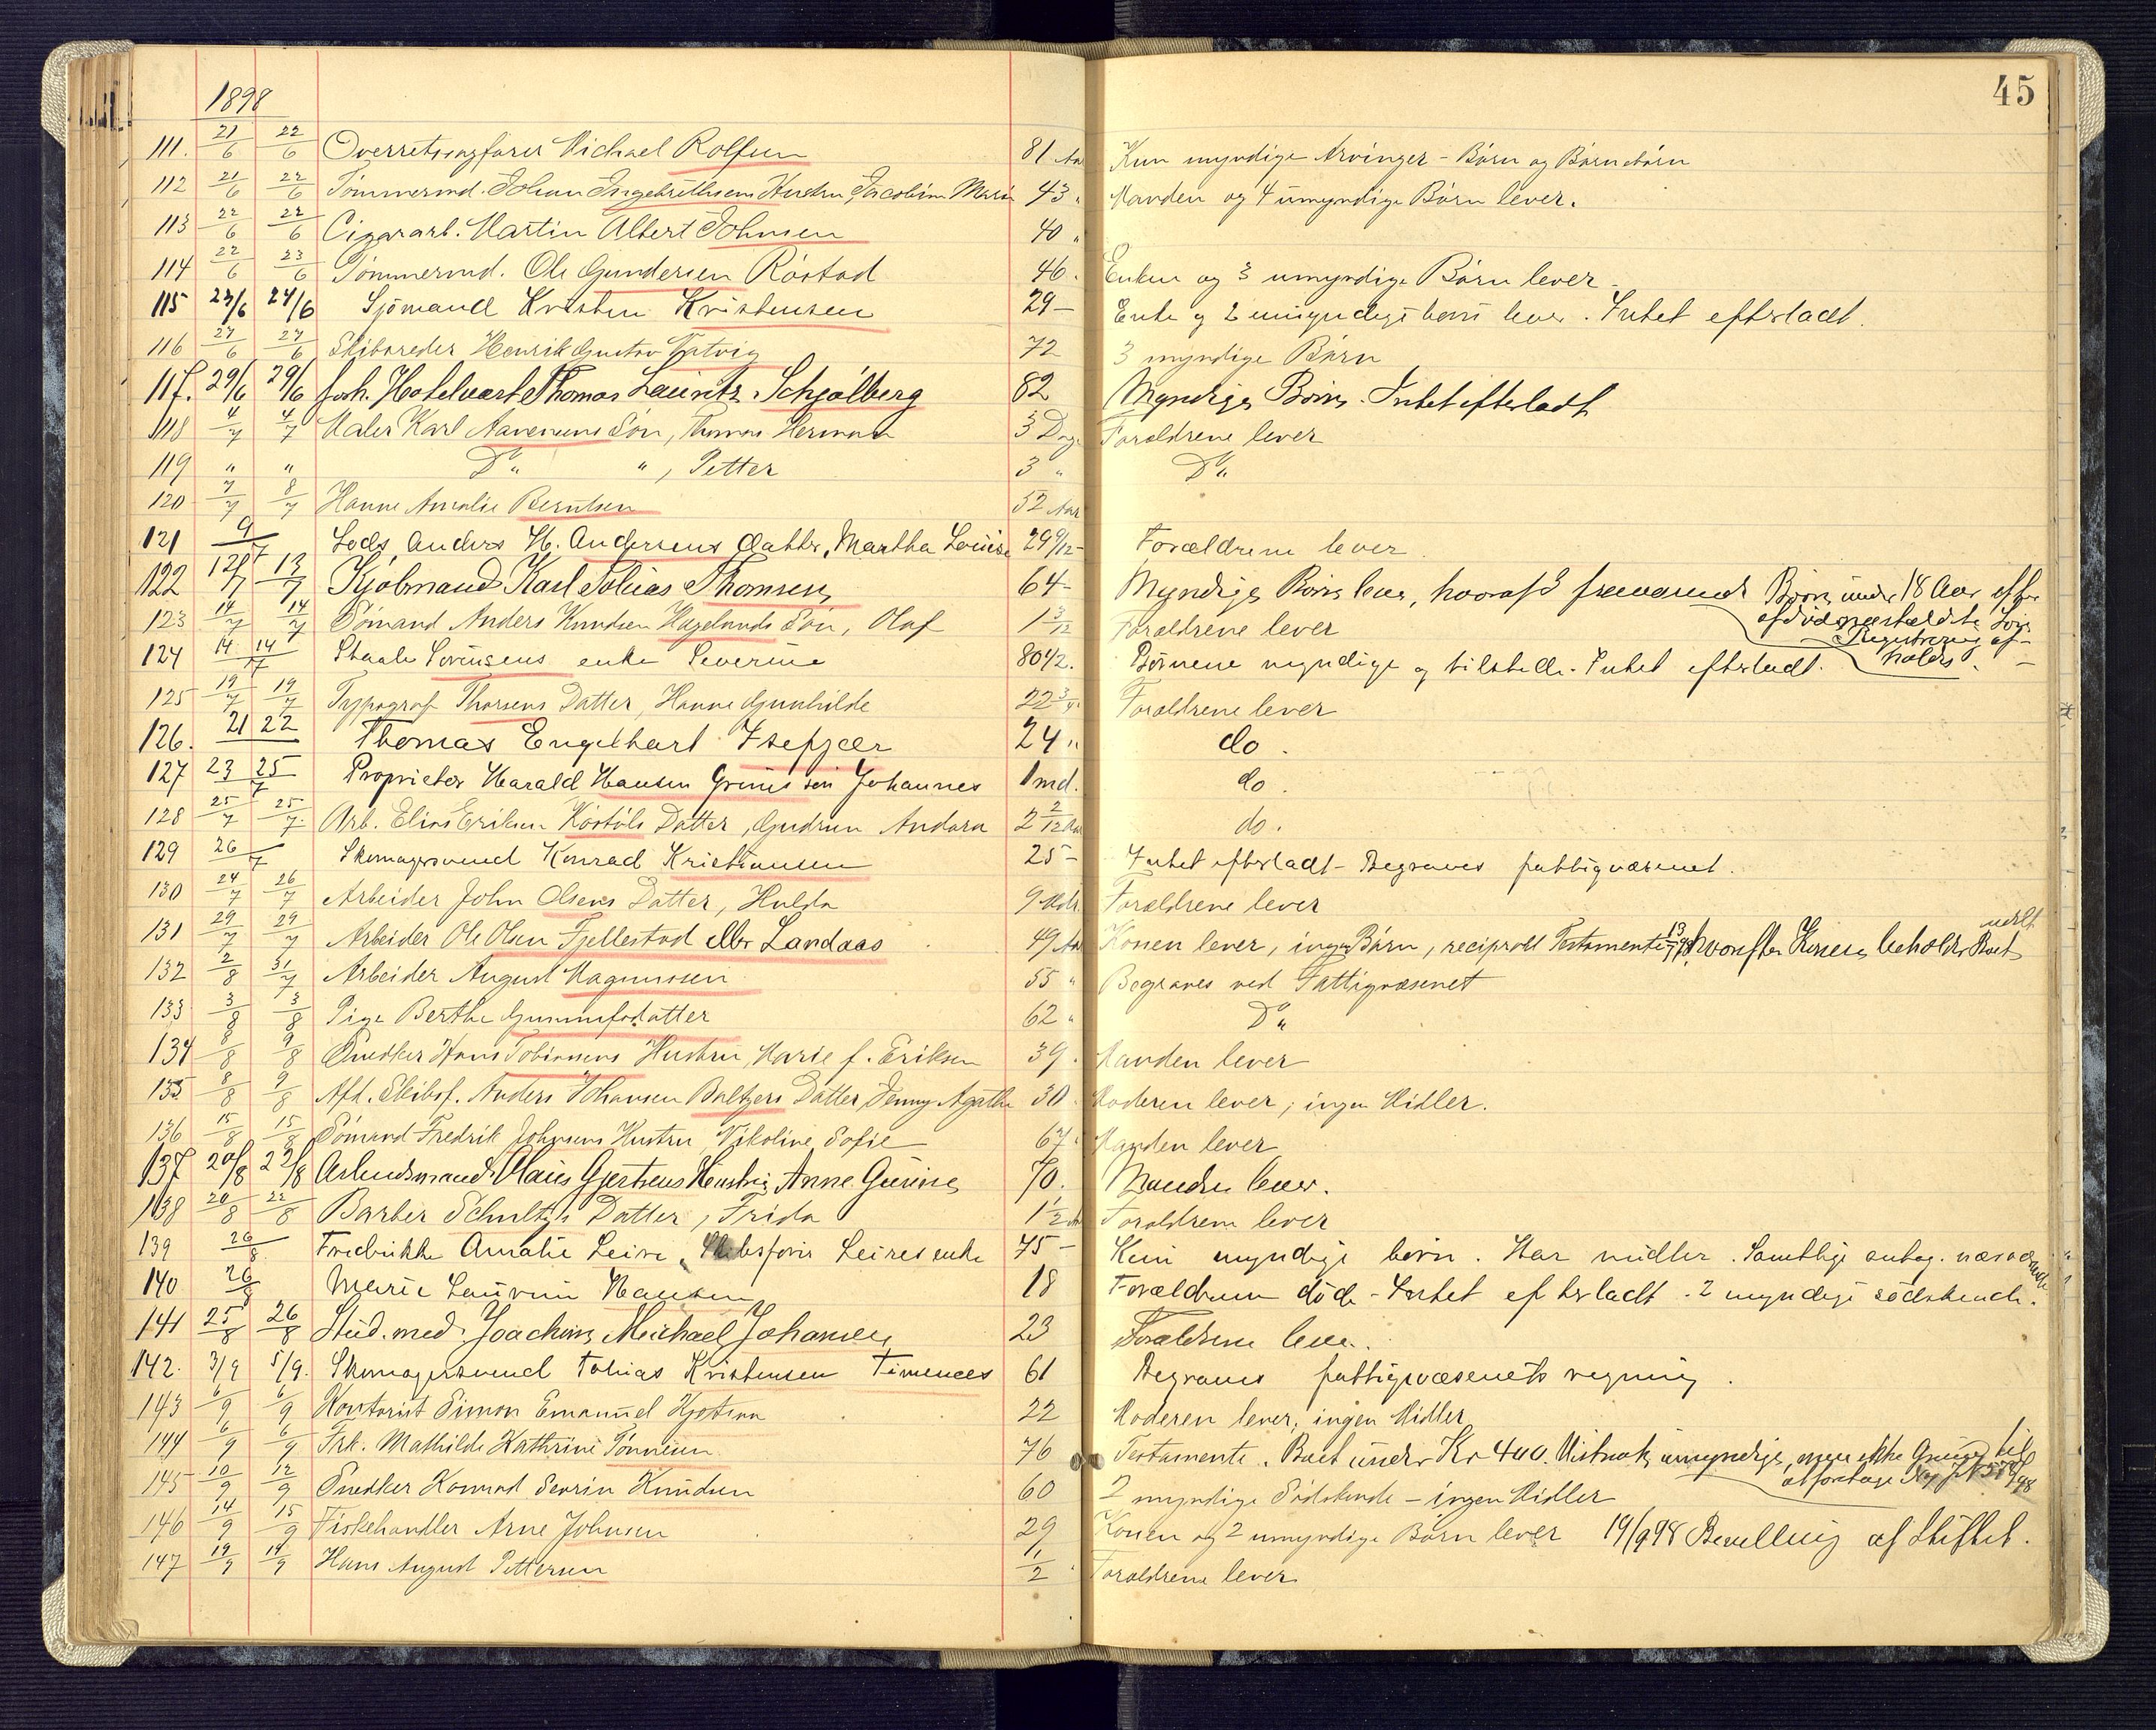 45
1898
111. 21/6 22/6 Overretssagfører Michael Rolfsen 81 Aar Kun myndige Arvinger - Børn og Børnebørn
112 21/6 22/6 Tømmermd. Johan Ingebrethsens Hustru, Jacobine Marie 43 " Manden og 4 umyndige Børn lever.
113 22/6 22/6 Cigararb. Martin Albert Johnsen 40 "
114 22/6 23/6 Tømmermd. Ole Gundersen Røstad 46. Enken og 3 umyndige Børn lever.
115 23/6 24/6 Sjömand Kristen Kristensen 29 - Enke og 2 umyndige børn lever. Intet efterladt.
116 27/6 27/6 Skibsreder Henrik Gustav 72 3 myndige Børn
117. 29/6 29/6 forh. Hotelvært Thomas Lauritz Schjølberg 82 Myndige Børn. Intet efterladt
118 4/7 4/7 Maler Karl Aanensens Søn, Thomas Herman 3 Dage Forældrene lever
119 " " Do " , Petter 3 " Do
120 7/7 8/7 Hanne Amalie Berntsen 52 Aar
121 9/7 Lods Anders H. Andersens datter, Martha Louise 29 9/12 - Forældrene lever.
122 12/7 13/7 Kjøbmand Karl Tobias Thomsen 64 - Myndige Børn lever, hvoraf 3 fraværende Børn under 18 Aar efter
afdøde
Registrering af-
holdes.
123 14/7 14/7 Sømand Anders Knudsen Hagelunds Søn, Olaf 1 3/12 Forældrene lever
124 14 14/7 Staale Sørensens enke Severine 80 1/2. Børnene myndige og tilstede. Intet efterladt. -
125 19/7 19/7 Typograf Thorsens Datter, Hanne Gunhilde 22 3/4 Forældrene lever
126. 21 22 Thomas Engelhart 24 " do.
127 23 25/7 Proprietær Harald Hansen Grims søn Johannes 1 md. do.
128 25/7 25/7. Arb. Elias Eriksen Köstöls Datter, Gudrun Andora 2 2/12 Aar do.
129 26/7 Skomagersvend Konrad Kristiansen 25 - Intet efterladt - Begraves fattigvæsenet.
130 24/7 26/7 Arbeider John Olsens Datter, Hulda 9 Mdr. Forældrene lever
131 29/7 29/7 Arbeider Ole Olsen Fjellestad eller Landaas 49 Aar Konen lever, ingen Børn, reciprokt Testamente 13/7 98 hvorefter Konen beholder Boet
132 2/8 31/7 Arbeider August Magnussen 55 " Begraves ved Fattigvæsenet
133 3/8 3/8 Pige Berthe Gummesdatter 62 " Do
134 8/8 9/8 Snedker Hans Tobiassens Hustru, Marie f. Eriksen 39. Manden lever
135 8/8 9/8 Afd. Skibsf. Anders Johansen Baltzers Datter, Jenny Agathe 30. Moderen lever; ingen Midler.
136 15/8 15/8 Sømand Fredrik Johnsens Hustru, Nikoline Sofie 67. Manden lever
137 20/8 22/8 Arbeidsmand Claus Gjertsens Hustru Anne Gurine 70. Manden lever.
138 20/8 22/8 Barber Schultzs Datter, Frida 1 1/2 Aar Forældrene lever
139 26/8. Fredrikke Amalie Leire, Skibsfører Leires enke 75 - Kun myndige børn. Har midler. Samtlige antag. nærværende
140 26/8 Marie Laurine Hansen 18 Forældrene døde - Intet efterladt - 2 myndige södskende.
141 25/8 26/8 Stud. med. Joachim Michael Johansen 23 Forældrene lever.
142. 3/9 5/9. Skomagersvend Tobias Kristensen Timenes 61 Begraves fattigvæsenets regning.
143 6/9 6/9 Kontorist Simon Emanuel 22 Moderen lever; ingen Midler
144 6/9 6/9 Frk. Mathilde Kathrine Tønnesen 76 Testamente. Boet under Kr 400. Vistnok umyndige, men ikke Grund til
at foretage
145 10/9 12/9 Snedker Konrad Severin Knudsen 60 2 myndige Södskende - ingen Midler
146 14/9 15/9 Fiskehandler Arne Johnsen 29 Konen og 2 umyndige Børn lever 19/9 98 Bevilling af Stiftet.
147 19/9 19/9 Hans August Pettersen 1/2 Forældrene lever